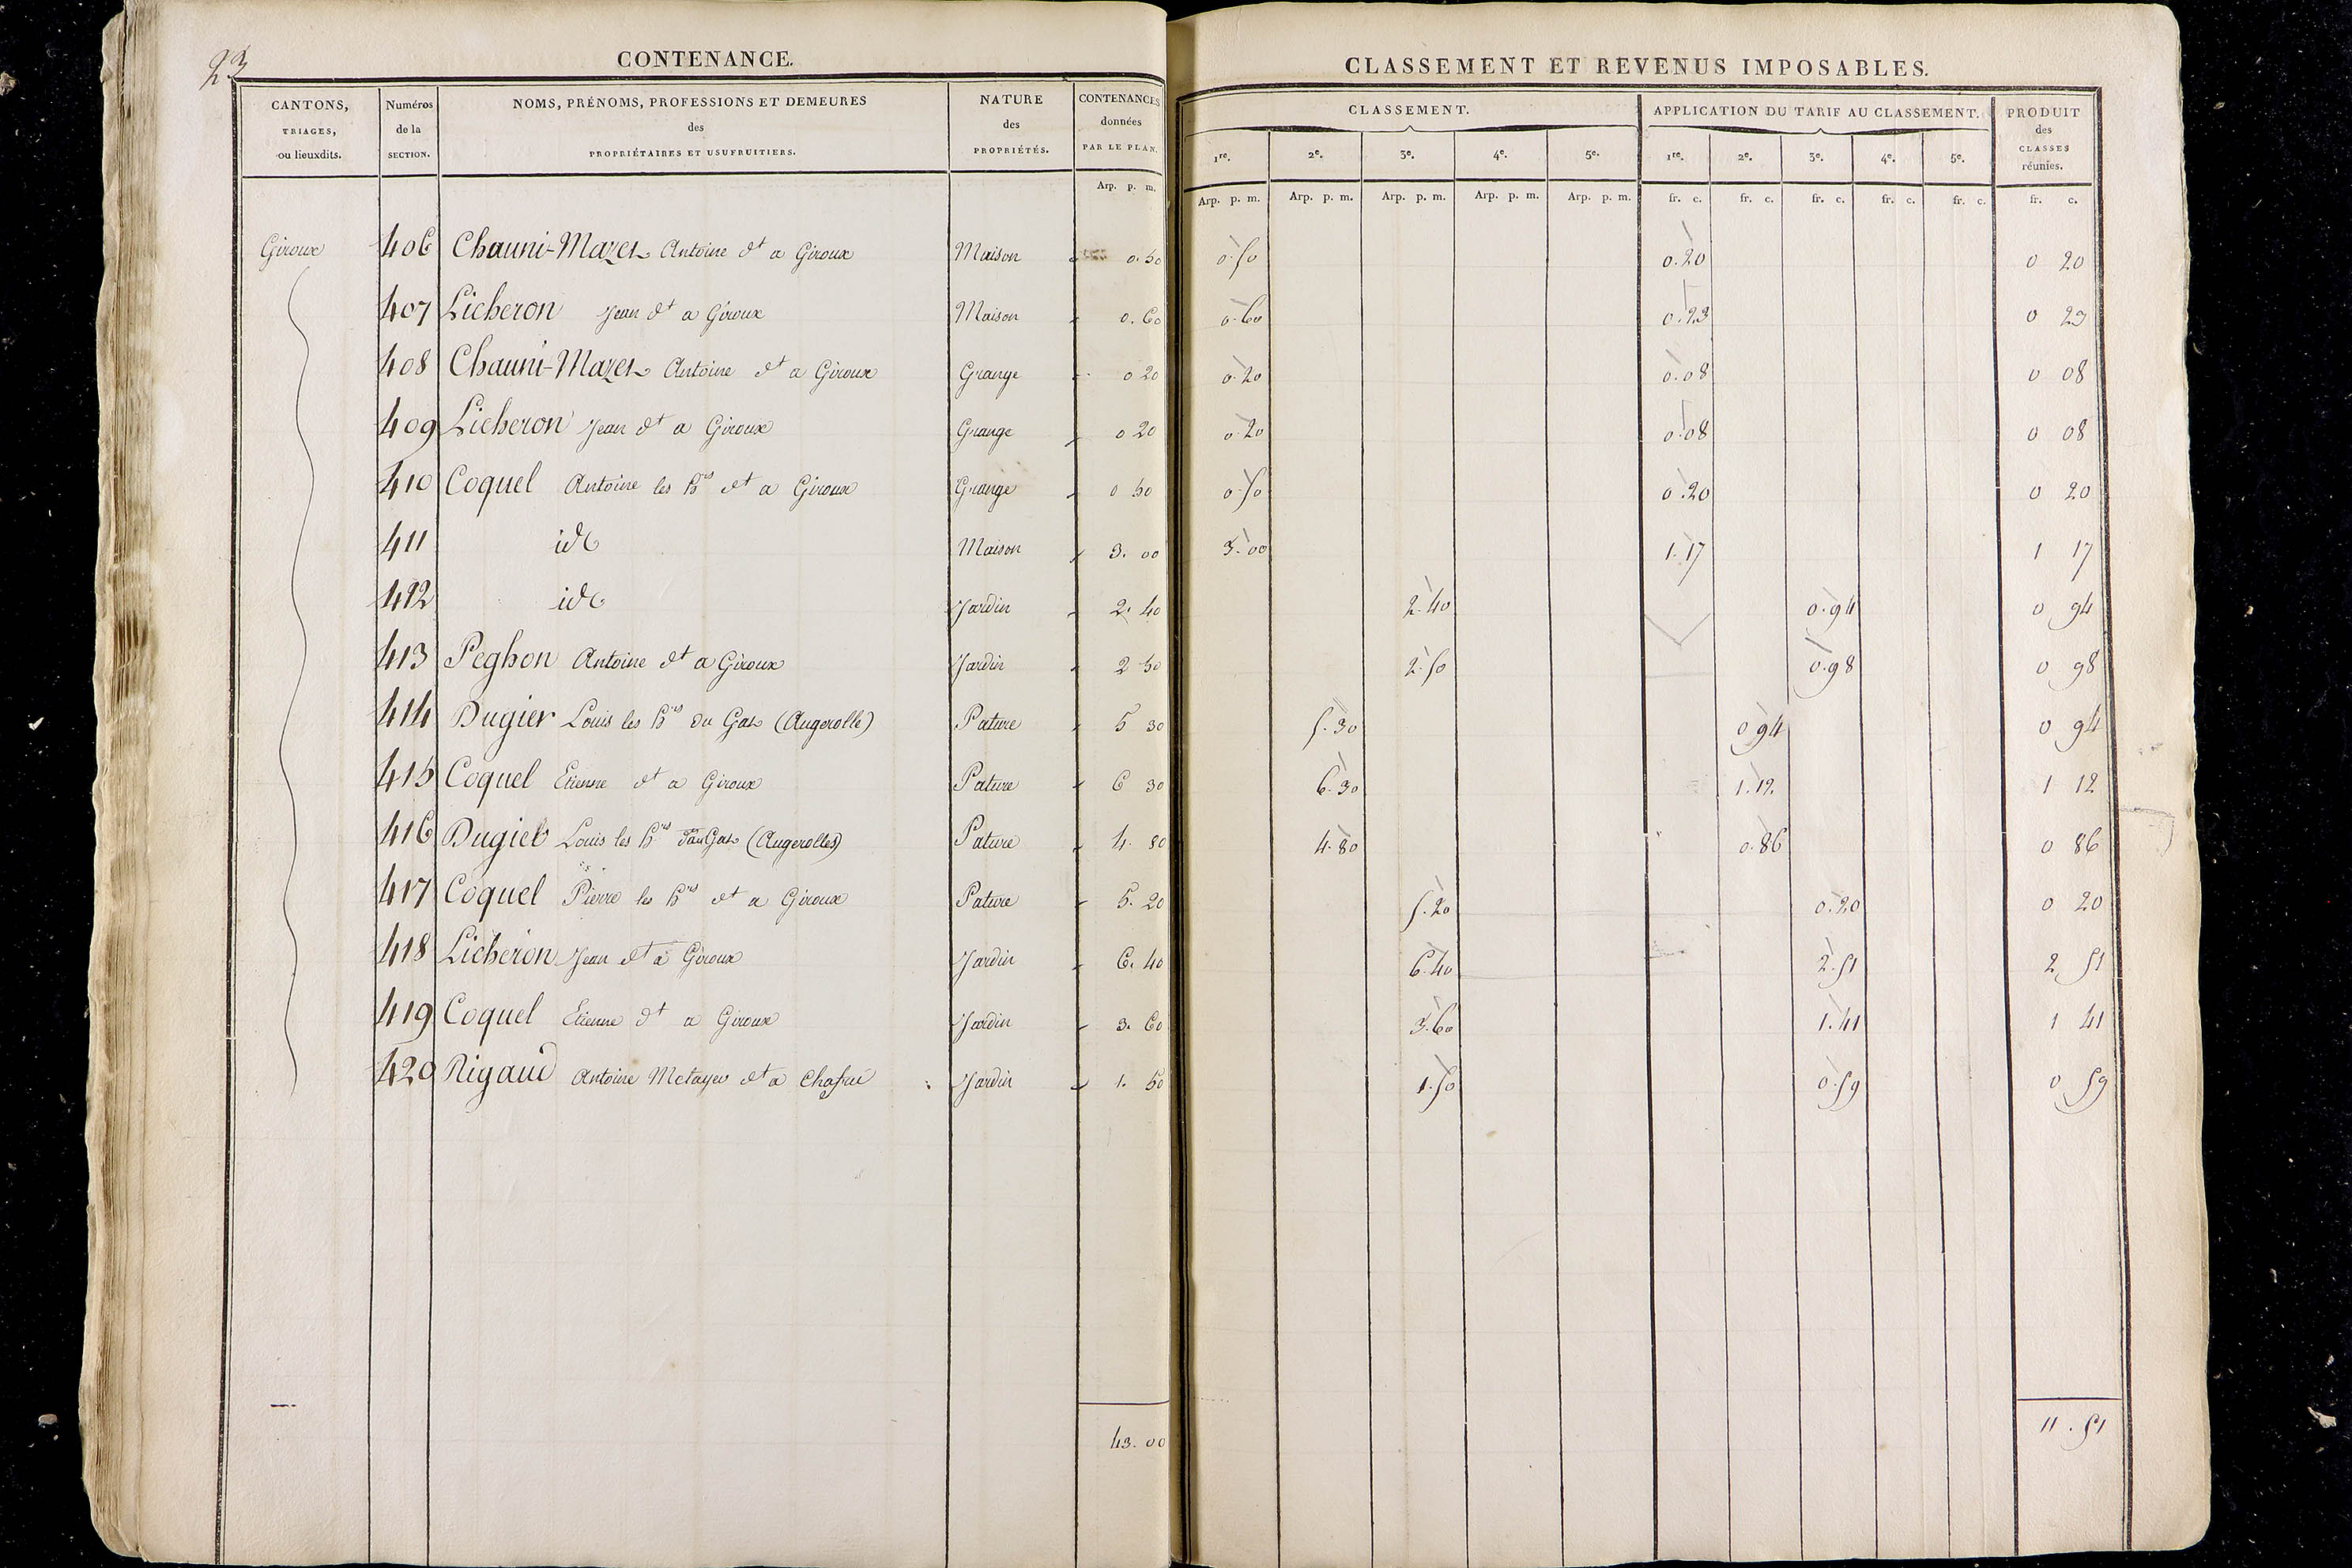 23
CONTENANCE.
CANTONS, TRIAGES, ou lieuxdits.
Numéros de la SECTION.
NOMS, PRÉNOMS, PROFESSIONS ET DEMEURES des PROPRIÉTAIRES ET USUFRUITIERS.
NATURE des PROPRIÉTÉS.
CONTENANCES données PAR LE PLAN.
Arp. p. m.
CLASSEMENT ET REVENUS IMPOSABLES.
CLASSEMENT.
APPLICATION DU TARIF AU CLASSEMENT.
PRODUIT des CLASSES réunies.
1re. 2e. 3e. 4e. 5e. 1re. 2e. 3e. 4e. 5e.
Arp. p. m. Arp. p. m. Arp. p. m. Arp. p. m. Arp. p. m. fr. c. fr. c. fr. c. fr. c. fr. c. fr. c.
Giroux 406 Chauni-Mazet Antoine dt a Giroux Maison 0.50 0.50 0.20 0 20
407 Licheron Jean dt a Giroux Maison 0.60 0.60 0.23 0 23
408 Chauni-Mazet Antoine dt a Giroux Grange 0 20 0.20 0.08 0 08
409 Licheron Jean dt a Giroux Grange 0 20 0.20 0.08 0 08
410 Coquel Antoine les hrs dt a Giroux Grange 0 50 0.50 0.20 0 20
411 id Maison 3. 00 3.00 1.17 1 17
412 id Jardin 2. 40 2.40 0.94 0 94
413 Peghon Antoine dt a Giroux Jardin 2 50 2.50 0.98 0 98
414 Dugier Louis les hrs du Gas (Augerolle) Pature 5 30 5.30 0.94 0 94
415 Coquel Etienne dt a Giroux Pature 6 30 6.30 1.12 1 12
416 Dugier Louis les hrs Gas (Augerolles) Pature 4. 80 4.80 0.86 0 86
417 Coquel Pierre les hrs dt a Giroux Pature 5. 20 5.20 0.20 0 20
418 Licheron Jean dt a Giroux Jardin 6. 40 6.40 2.51 2 51
419 Coquel Etienne dt a Giroux Jardin 3. 60 3.60 1.41 1 41
420 Rigaud Antoine Metayer dt a Jardin 1. 50 1.50 0.59 0 59
43.00 11.51